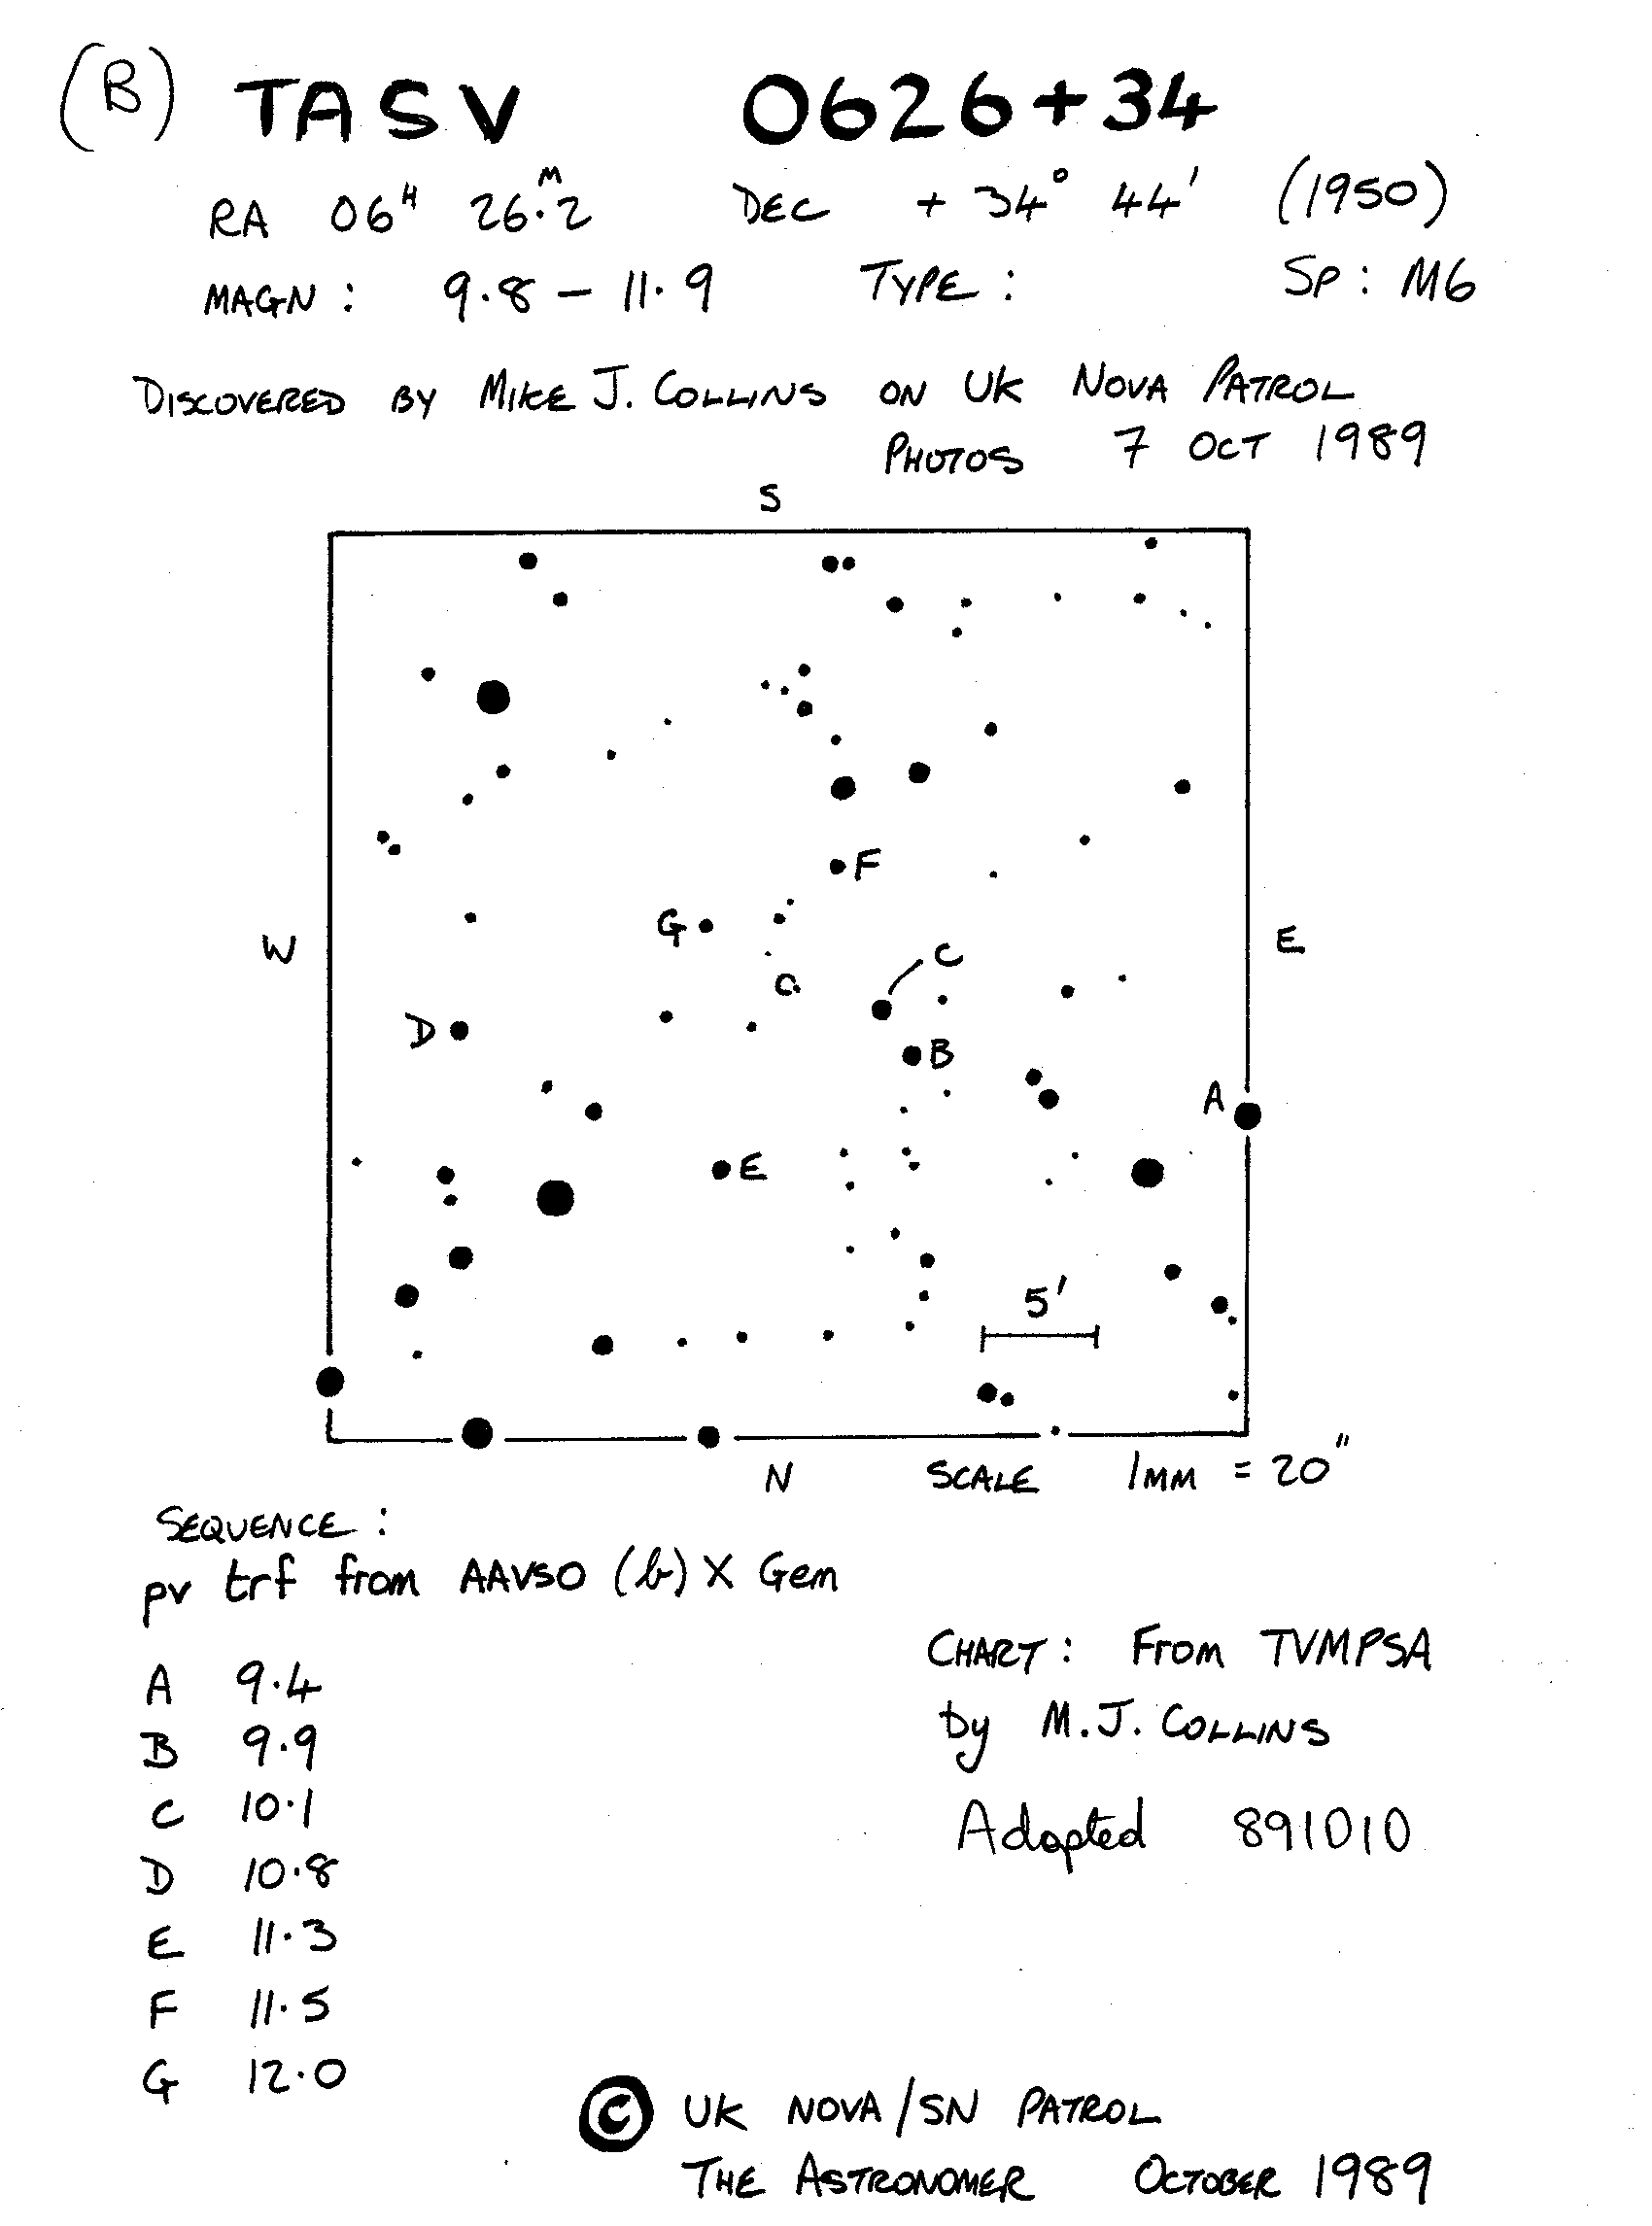 (B) TASV 0626+34
RA 06ᴴ 26.ᴹ2 DEC +34° 44' (1950)
MAGN: 9.8 – 11.9 TYPE: SP: M6
DISCOVERED BY MIKE J. COLLINS ON UK NOVA PATROL
PHOTOS 7 OCT 1989
S
F
G
W
E
C
D
B
A
E
5'
N
SCALE 1MM = 20"
SEQUENCE:
pv trf from AAVSO (b) X Gem
A 9.4
B 9.9
C 10.1
D 10.8
E 11.3
F 11.5
G 12.0
CHART: From TVMPSA
by M.J. COLLINS
Adopted 891010
© UK NOVA/SN PATROL
THE ASTRONOMER OCTOBER 1989